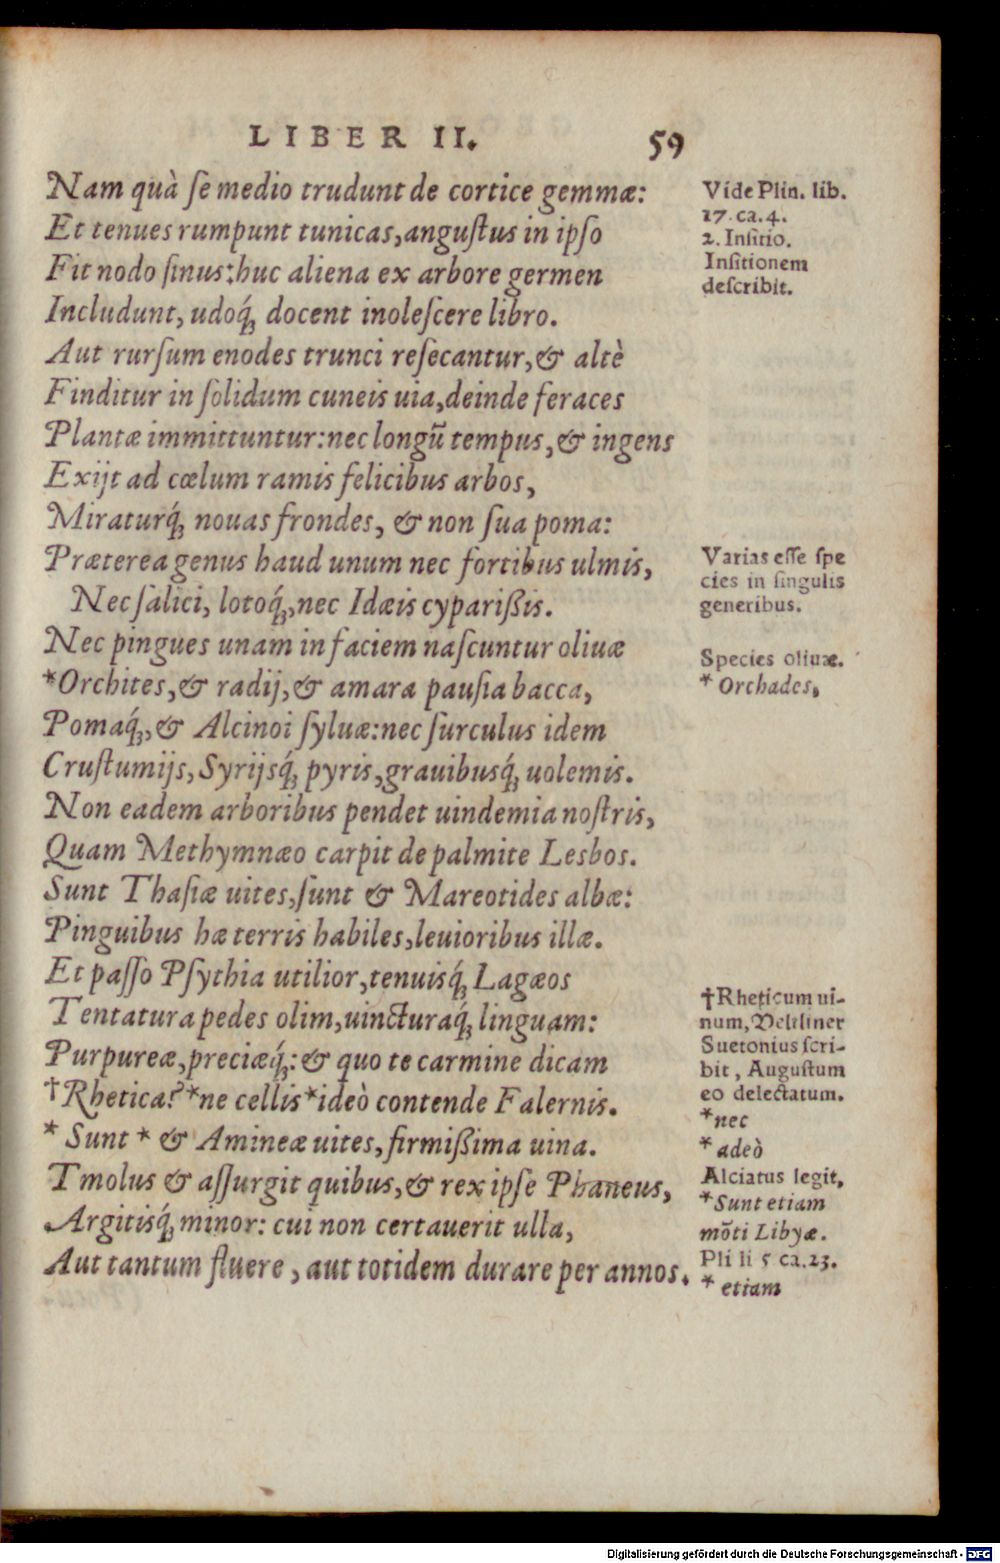 LIBER II. 59
Nam quà ſe medio trudunt de cortice gemmæ:
Et tenues rumpunt tunicas, anguſtus in ipſo
Fit nodo ſinus: huc aliena ex arbore germen
Includunt, udoq́ꝫ docent inoleſcere libro.
Aut rurſum enodes trunci reſecantur, & altè
Finditur in ſolidum cuneis uia, deinde feraces
Plantæ immittuntur: nec longũ tempus, & ingens
Exijt ad cœlum ramis felicibus arbos,
Miraturq́ꝫ nouas frondes, & non ſua poma:
Præterea genus haud unum nec fortibus ulmis,
Nec ſalici, lotoq́ꝫ, nec Idæis cyparißis.
Nec pingues unam in faciem naſcuntur oliuæ
*Orchites, & radij, & amara pauſia bacca,
Pomaq́ꝫ, & Alcinoi ſyluæ: nec ſurculus idem
Cruſtumijs, Syrijsq́ꝫ pyris, grauibusq́ꝫ uolemis.
Non eadem arboribus pendet uindemia noſtris,
Quam Methymnæo carpit de palmite Lesbos.
Sunt Thaſiæ uites, ſunt & Mareotides albæ:
Pinguibus hæ terris habiles, leuioribus illæ.
Et paſſo Pſythia utilior, tenuisq́ꝫ Lagæos
Tentatura pedes olim, uincturaq́ꝫ linguam:
Purpureæ, preciæq́ꝫ: & quo te carmine dicam
†Rhetica? *ne cellis *ideò contende Falernis.
* Sunt * & Amineæ uites, firmißima uina.
Tmolus & aſſurgit quibus, & rex ipſe Phaneus,
Argitisq́ꝫ minor: cui non certauerit ulla,
Aut tantum fluere, aut totidem durare per annos.
Vide Plin. lib.
17. ca. 4.
2. Inſitio.
Inſitionem
deſcribit.
Varias eſſe ſpe
cies in ſingulis
generibus.
Species oliuæ.
* Orchades,
†Rheticum ui-
num, Veltliner
Suetonius ſcri-
bit, Auguſtum
eo delectatum.
*nec
* adeò
Alciatus legit,
*Sunt etiam
mõti Libyæ.
Pli li 5 ca. 23.
* etiam
Digitalisierung gefördert durch die Deutsche Forschungsgemeinschaft - DFG